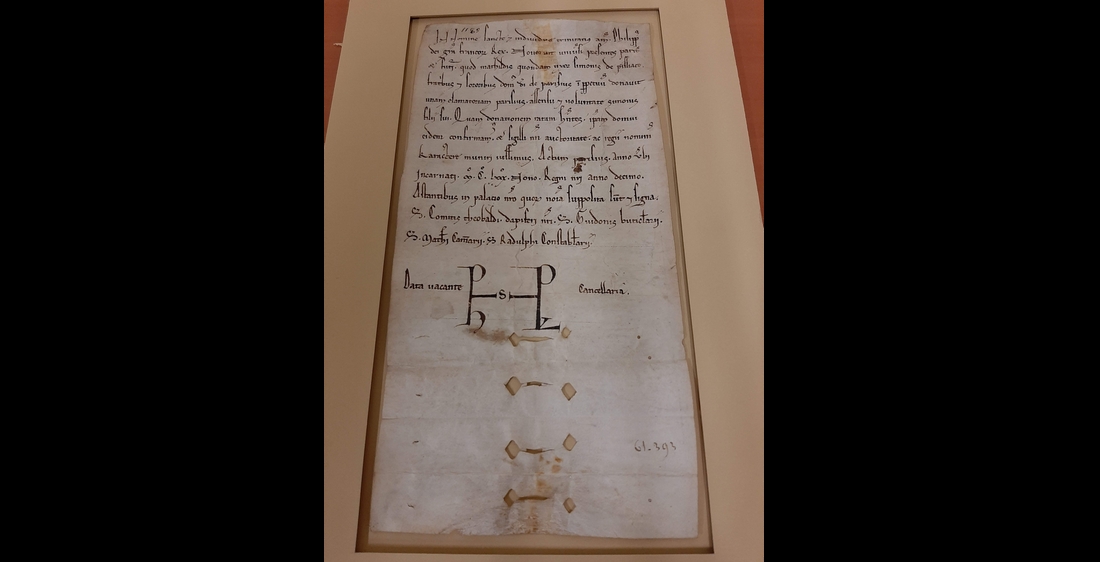 1189
In Nomine sancte et individue trinitatis am̄. Philipp9
dei gr̄a francor̄ Rex. Noverint univsi presentes parit̄
et fut̄i. quod mathildis quondam uxor simonis de
fratribus ⁊ sororibus dom9 dī de parisius ī ppetuū donavit
unam parisius. assensu ⁊ voluntate simonis
filii sui. Quam donationem ratam hntes. ipam domui
eidem confirmam9. et sigilli nr̄i auctoritate. ac regii nominis
karactere muniri p̄cipimus. Actum parisius. anno v̄bi
Incarnati. M̊. C̊. lxxx. Nono. Regni nr̄i anno decimo.
Astantibus in palacio nr̄o quor̄ noīa supposita sūt ⁊ signa.
S. Comitis theobaldi. dapiferi nr̄i. S. Guidonis buticlarii.
S. Mathī Cam̄arii. S Radulphi Constablarii.
Data vacante
Ph S PL
Cancellaria.
61.393